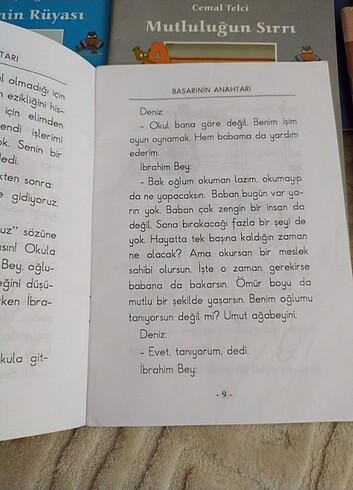 Cemal Telci
Mutluluğun Sırrı
nin Rüyası
TARI
l olmadığı için
n ezikliğini his-
için elimden
endi işlerimi
ok. Senin bir
dedi.
kten sonra:
gidiyoruz.
uz” sözüne
asın! Okula
Bey, oğlu-
eğini düşü-
rken İbra-
kula git-
BAŞARININ ANAHTARI
Deniz:
- Okul bana göre değil. Benim işim
oyun oynamak. Hem babama da yardım
ederim.
İbrahim Bey:
- Bak oğlum okuman lazım, okumayıp
da ne yapacaksın. Baban bugün var ya-
rın yok. Baban çok zengin bir insan da
değil. Sana bırakacağı fazla bir şeyi de
yok. Hayatta tek başına kaldığın zaman
ne olacak? Ama okursan bir meslek
sahibi olursun. İşte o zaman gerekirse
babana da bakarsın. Ömür boyu da
mutlu bir şekilde yaşarsın. Benim oğlumu
tanıyorsun değil mi? Umut ağabeyini.
Deniz:
- Evet, tanıyorum, dedi.
İbrahim Bey:
- 9 -